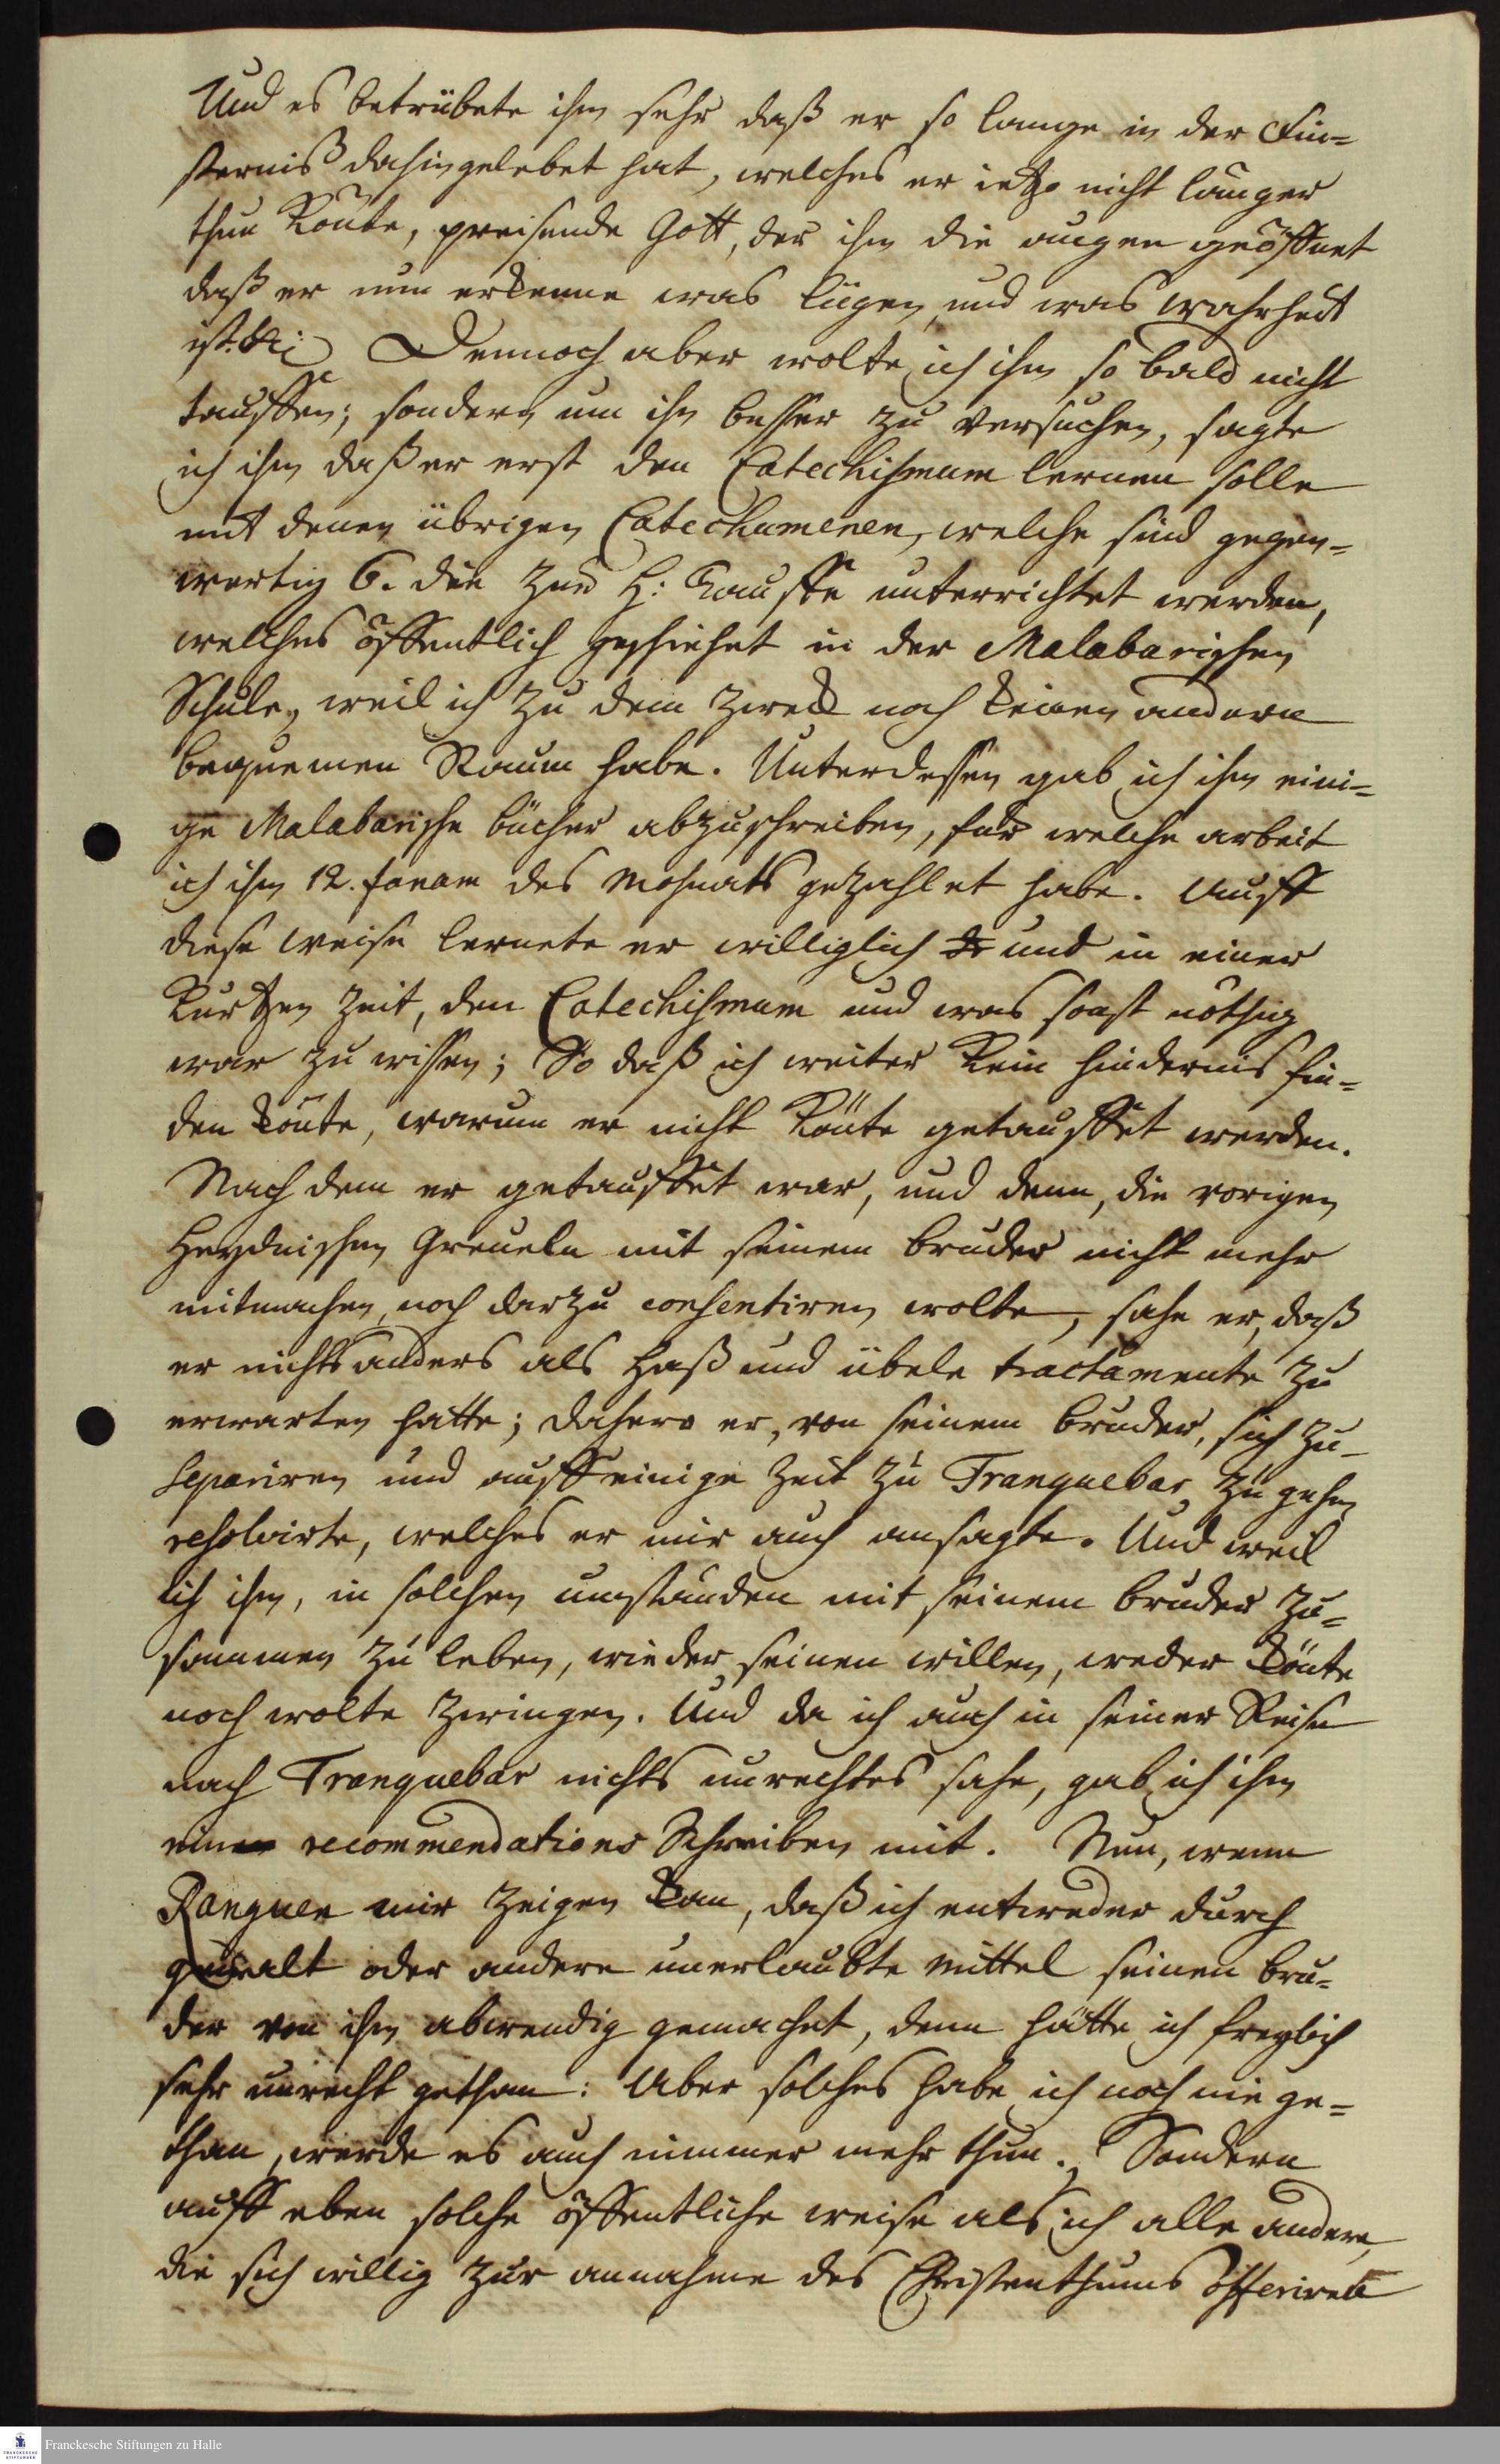 Und es betrübete ihm sehr daß er so lange in der Fin=
sterniß dahingelebet hat, welches er ietzo nicht länger
thun könte, preisende Gott, der ihm die augen geöffnet
daß er nun erkenne was lügen und was wahrheit
ist. &c: Dennoch aber wolte ich ihn so bald nicht
tauffen; sondern um ihn besser zu versuchen, sagte
ich ihm daß er erst den Catechismum lernen solle
mit denen übrigen Catechumenen, welche sind gegen=
wertig 6. die zur H: Tauffe unterrichtet werden,
welches öffentlich geschiehet in der Malabarischen
Schule, weil ich zu dem zweck noch keinen andern
bequemen Raum habe. Unterdessen gab ich ihm eini=
ge Malabarische bücher abzuschreiben, für welche arbeit
ich ihm 12. fanam des Mohnats gezahlet habe. Auff
diese weise lernete er williglich und in einer
kurtzen Zeit, den Catechismum und was sonst nöthig
war zu wissen; So daß ich weiter kein hindernis fin=
den könte, warum er nicht könte getauffet werden.
Nach dem er getauffet war, und denn, die vorigen
Heydnischen Greueln mit seinem bruder nicht mehr
mitmachen, noch darzu consentiren wolte, sahe er, daß
er nichts anders als Haß und übele tractamente zu
erwarten hatte; dahero er, von seinem bruder, sich zu
separiren und auff einige Zeit zu Tranquebar zu gehen
resolvirte, welches er mir auch ansagte. Und weil
ich ihn, in solchen umständen mit seinem bruder zu=
sammen zu leben, wieder seinen willen, weder könte
noch wolte zwingen. Und da ich auch in seiner Reise
nach Tranquebar nichts unrechtes sahe, gab ich ihm
ein recommendations Schreiben mit. Nun, wenn
Ranguen mir zeigen kan, daß ich entweder durch
gewalt oder andere unerlaubte mittel seinen bru=
der von ihm abwendig gemachet, denn hätte ich freylich
sehr unrecht gethan: Aber solches habe ich noch nie ge=
than, werde es auch nimmer mehr thun. Sondern
auff eben solche öffentliche weise als ich alle andere,
die sich willig zur annahme des Christenthums offeriren
Franckesche Stiftungen zu Halle